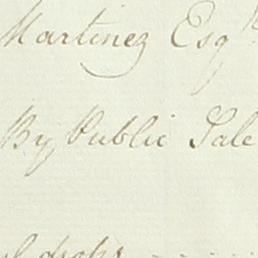 Martinez Esqr
By Public Sale